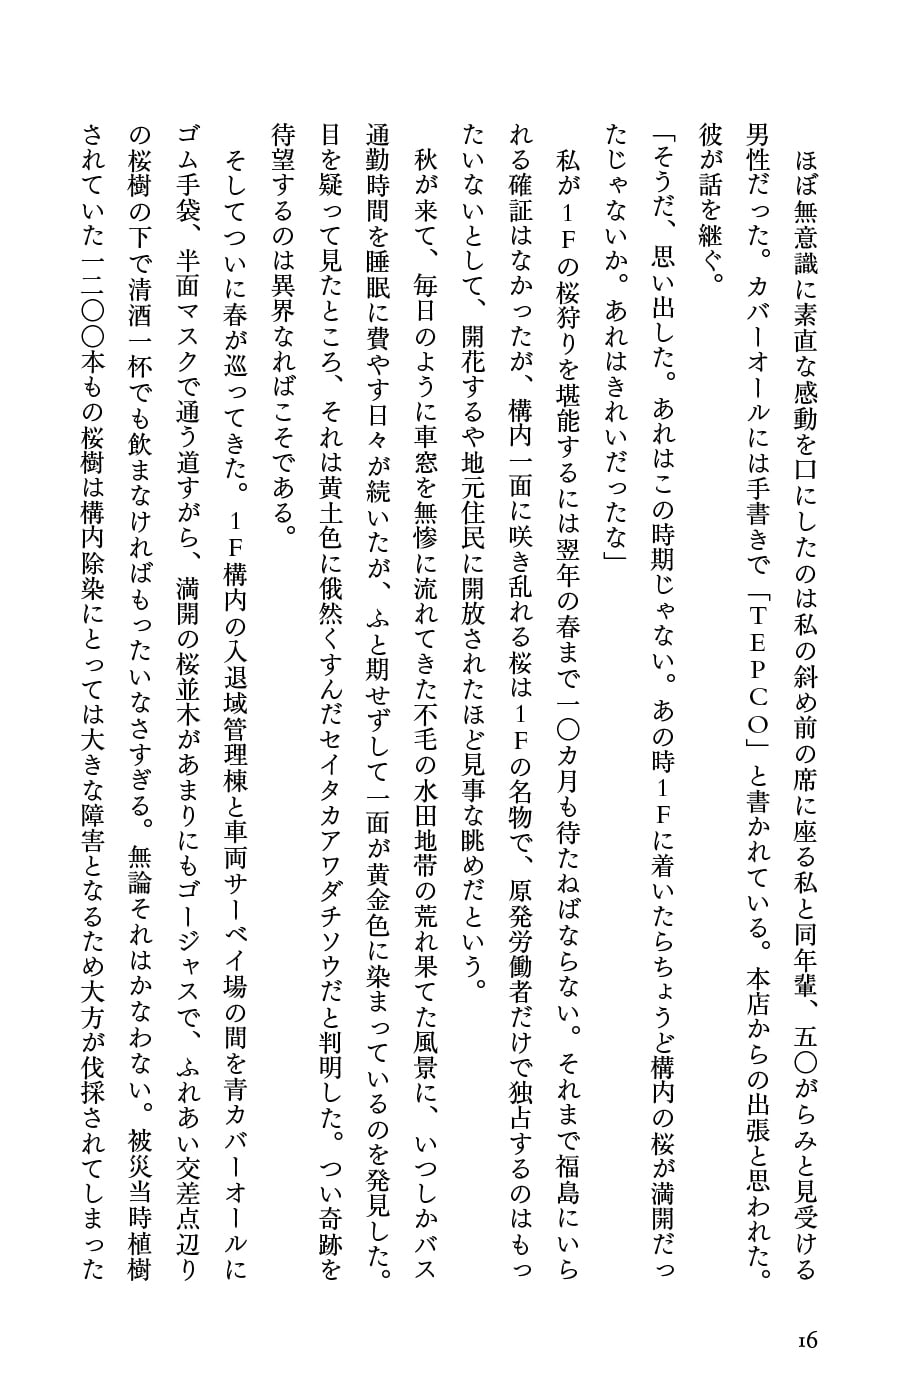 ほぼ無意識に素直な感動を口にしたのは私の斜め前の席に座る私と同年輩、五〇がらみと見受ける
男性だった。カバーオールには手書きで「TEPCO」と書かれている。本店からの出張と思われた。
彼が話を継ぐ。
「そうだ、思い出した。あれはこの時期じゃない。あの時1Fに着いたらちょうど構内の桜が満開だっ
たじゃないか。あれはきれいだったな」
　私が1Fの桜狩りを堪能するには翌年の春まで一〇カ月も待たねばならない。それまで福島にいら
れる確証はなかったが、構内一面に咲き乱れる桜は1Fの名物で、原発労働者だけで独占するのはもっ
たいないとして、開花するや地元住民に開放されたほど見事な眺めだという。
　秋が来て、毎日のように車窓を無惨に流れてきた不毛の水田地帯の荒れ果てた風景に、いつしかバス
通勤時間を睡眠に費やす日々が続いたが、ふと期せずして一面が黄金色に染まっているのを発見した。
目を疑って見たところ、それは黄土色に俄然くすんだセイタカアワダチソウだと判明した。つい奇跡を
待望するのは異界なればこそである。
　そしてついに春が巡ってきた。1F構内の入退域管理棟と車両サーベイ場の間を青カバーオールに
ゴム手袋、半面マスクで通う道すがら、満開の桜並木があまりにもゴージャスで、ふれあい交差点辺り
の桜樹の下で清酒一杯でも飲まなければもったいなさすぎる。無論それはかなわない。被災当時植樹
されていた一二〇〇本もの桜樹は構内除染にとっては大きな障害となるため大方が伐採されてしまった
16